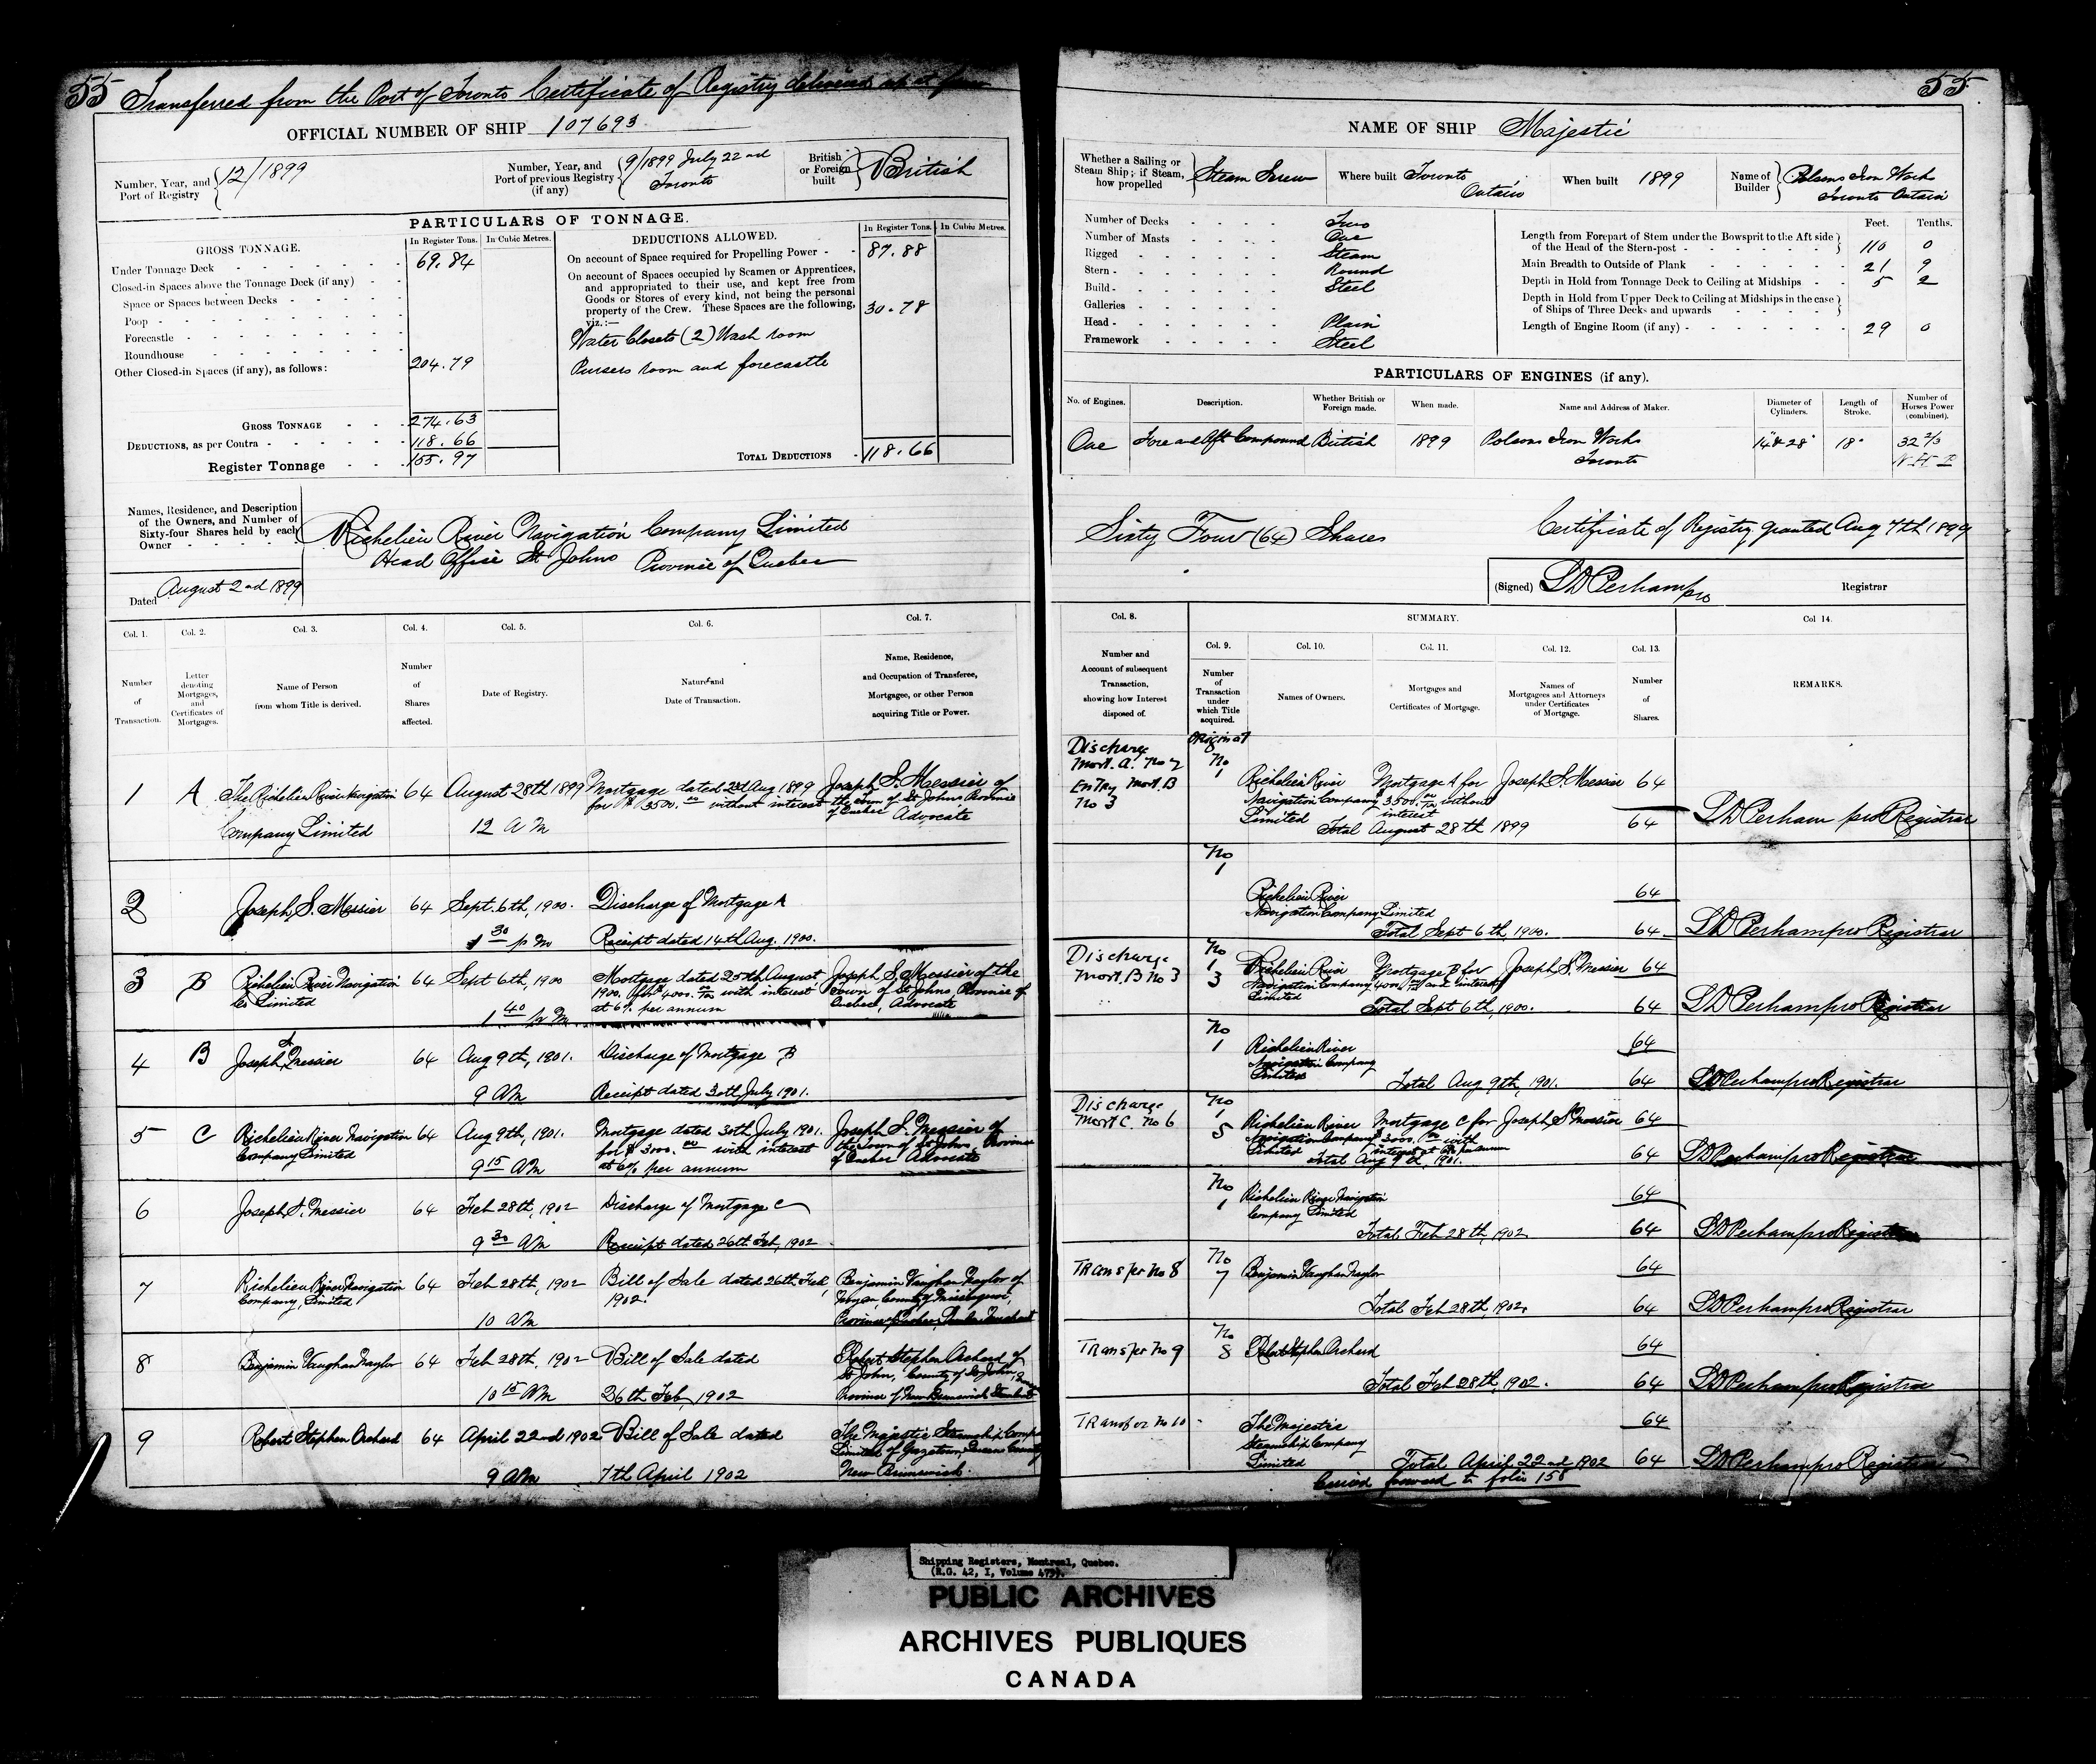 55 Transferred from the Port of Toronto Certificate of Registry delivered up at
55
OFFICIAL NUMBER OF SHIP 107693
Number, Year, and Port of Registry 12/1899
Number, Year, and Port of previous Registry (if any) 9/1899 July 22nd Toronto
British or Foreign built British
PARTICULARS OF TONNAGE.
GROSS TONNAGE.
In Register Tons.
In Cubic Metres.
Under Tonnage Deck 69.84
Closed-in Spaces above the Tonnage Deck (if any)
Space or Spaces between Decks
Poop
Forecastle
Roundhouse
Other Closed-in Spaces (if any), as follows: 204.79
GROSS TONNAGE 274.63
DEDUCTIONS, as per Contra 118.66
Register Tonnage 155.97
DEDUCTIONS ALLOWED.
In Register Tons.
In Cubic Metres.
On account of Space required for Propelling Power 87.88
On account of Spaces occupied by Seamen or Apprentices,
and appropriated to their use, and kept free from
Goods or Stores of every kind, not being the personal
property of the Crew. These Spaces are the following,
viz.:— 30.78
Water Closets (2) Wash room
Pursers room and forecastle
TOTAL DEDUCTIONS 118.66
Names, Residence, and Description
of the Owners, and Number of
Sixty-four Shares held by each
Owner
Richelieu River Navigation Company Limited
Head Office St Johns Province of Quebec
Dated August 2nd 1899
NAME OF SHIP Majestic
Whether a Sailing or Steam Ship; if Steam, how propelled Steam Screw
Where built Toronto Ontario
When built 1899
Name of Builder Polsons Iron Work Toronto Ontario
Number of Decks Two
Number of Masts One
Rigged Steam
Stern Round
Build Steel
Galleries
Head Plain
Framework Steel
Feet. Tenths.
Length from Forepart of Stem under the Bowsprit to the Aft side
of the Head of the Stern-post 110 0
Main Breadth to Outside of Plank 21 9
Depth in Hold from Tonnage Deck to Ceiling at Midships 5 2
Depth in Hold from Upper Deck to Ceiling at Midships in the case
of Ships of Three Decks and upwards
Length of Engine Room (if any) 29 0
PARTICULARS OF ENGINES (if any).
No. of Engines.
Description.
Whether British or Foreign made.
When made.
Name and Address of Maker.
Diameter of Cylinders.
Length of Stroke.
Number of Horses Power (combined).
One Fore and Aft Compound British 1899 Polsons Iron Works Toronto 14" & 28" 18" 32 2/3 N H P
Sixty Four (64) Shares
Certificate of Registry granted Aug 7th 1899
(Signed) LD Perham pro Registrar
Col. 1. Number of Transaction.
Col. 2. Letter denoting Mortgages, and Certificates of Mortgages.
Col. 3. Name of Person from whom Title is derived.
Col. 4. Number of Shares affected.
Col. 5. Date of Registry.
Col. 6. Nature and Date of Transaction.
Col. 7. Name, Residence, and Occupation of Transferee, Mortgagee, or other Person acquiring Title or Power.
Col. 8. Number and Account of subsequent Transaction, showing how Interest disposed of.
SUMMARY.
Col. 9. Number of Transaction under which Title acquired.
Col. 10. Names of Owners.
Col. 11. Mortgages and Certificates of Mortgage.
Col. 12. Names of Mortgagees and Attorneys under Certificates of Mortgage.
Col. 13. Number of Shares.
Col 14. REMARKS.
1 A The Richelieu River Navigation Company Limited 64 August 28th 1899 12 A M
Mortgage dated 22d Aug 1899 for $3500.00 without interest
Joseph S. Messier of the Town of St Johns Province of Quebec Advocate
Discharge Mort. A. No 2 Entry Mort. B No 3
Original No 1
Richelieu River Navigation Company Limited
Mortgage A for $3500.00 without interest
Joseph S. Messier 64
Total August 28th 1899 64
LD Perham pro Registrar
2 Joseph S. Messier 64 Sept. 6th, 1900. 1 30 p m
Discharge of Mortgage A
Receipt dated 14th Aug. 1900.
No 1
Richelieu River Navigation Company Limited 64
Total Sept 6th, 1900. 64
LD Perham pro Registrar
3 B Richelieu River Navigation Co Limited 64 Sept 6th, 1900 1 40 p m
Mortgage dated 25th August 1900. for $4000.00 with interest at 6% per annum
Joseph S. Messier of the Town of St Johns Province of Quebec, Advocate
Discharge Mort. B No 3
No 1 3
Richelieu River Navigation Company Limited
Mortgage B for 4000 and interest
Joseph S. Messier 64
Total Sept 6th, 1900. 64
LD Perham pro Registrar
4 B Joseph S. Messier 64 Aug 9th, 1901. 9 AM
Discharge of Mortgage B
Receipt dated 30th July 1901.
No 1
Richelieu River Navigation Company Limited 64
Total Aug 9th, 1901. 64
LD Perham pro Registrar
5 C Richelieu River Navigation Company Limited 64 Aug 9th, 1901. 9 15 AM
Mortgage dated 30th July 1901. for $3000.00 with interest at 6% per annum
Joseph S. Messier of the Town of St Johns, Province of Quebec Advocate
Discharge Mort C No 6
No 1 5
Richelieu River Navigation Company Limited
Mortgage C for $3000.00 with interest at 6% per annum
Joseph S. Messier 64
Total Aug 9th, 1901. 64
LD Perham pro Registrar
6 Joseph S. Messier 64 Feb 28th, 1902 9 30 AM
Discharge of Mortgage C
Receipt dated 26th Feb, 1902
No 1
Richelieu River Navigation Company Limited 64
Total Feb 28th, 1902 64
LD Perham pro Registrar
7 Richelieu River Navigation Company, Limited 64 Feb 28th, 1902 10 AM
Bill of Sale dated 26th Feb, 1902.
Benjamin Vaughan Naylor of Noyan, County of Missisquoi, Province of Quebec,
Transfer No 8
No 7
Benjamin Vaughan Naylor 64
Total Feb 28th, 1902. 64
LD Perham pro Registrar
8 Benjamin Vaughan Naylor 64 Feb 28th, 1902 10 15 AM
Bill of Sale dated 26th Feb, 1902
Robert Stephen Orchard of St John, County of St John, Province of New Brunswick
Transfer No 9
No 8
Robert Stephen Orchard 64
Total Feb 28th, 1902. 64
LD Perham pro Registrar
9 Robert Stephen Orchard 64 April 22nd 1902 9 AM
Bill of Sale dated 7th April 1902
The Majestic Steamship Company Limited of Gagetown, Queens County New Brunswick.
Transfer No 10
The Majestic Steamship Company Limited 64
Total April 22nd 1902 64
LD Perham pro Registrar
Carried forward to folio 158
Shipping Registers, Montreal, Quebec.
(R.G. 42, I, Volume 479).
PUBLIC ARCHIVES
ARCHIVES PUBLIQUES
CANADA